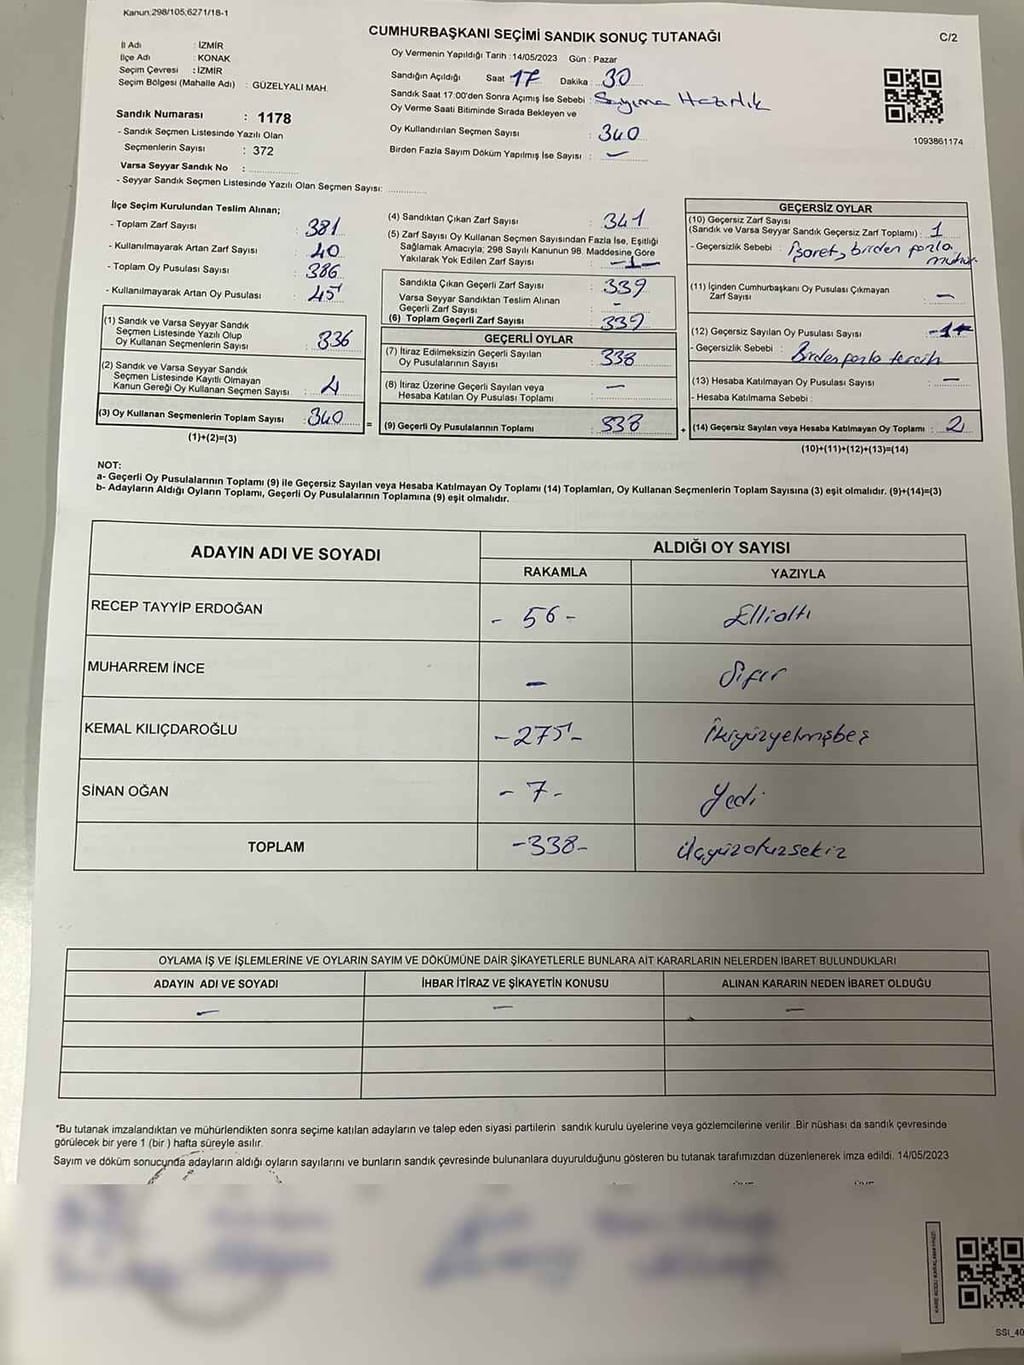 Kanun:298/105,6271/18-1
CUMHURBAŞKANI SEÇİMİ SANDIK SONUÇ TUTANAĞI
C/2
İl Adı : İZMİR
İlçe Adı : KONAK
Seçim Çevresi : İZMİR
Seçim Bölgesi (Mahalle Adı) : GÜZELYALI MAH.
Sandık Numarası : 1178
- Sandık Seçmen Listesinde Yazılı Olan
Seçmenlerin Sayısı : 372
Varsa Seyyar Sandık No :
- Seyyar Sandık Seçmen Listesinde Yazılı Olan Seçmen Sayısı:
Oy Vermenin Yapıldığı Tarih : 14/05/2023 Gün : Pazar
Sandığın Açıldığı Saat 17 Dakika : 30
Sandık Saat 17:00'den Sonra Açımış İse Sebebi : Sayıma Hazırlık
Oy Verme Saati Bitiminde Sırada Bekleyen ve
Oy Kullandırılan Seçmen Sayısı : 340
Birden Fazla Sayım Döküm Yapılmış İse Sayısı : –
1093861174
İlçe Seçim Kurulundan Teslim Alınan;
- Toplam Zarf Sayısı : 381
- Kullanılmayarak Artan Zarf Sayısı : 40
- Toplam Oy Pusulası Sayısı : 386
- Kullanılmayarak Artan Oy Pusulası : 45
(1) Sandık ve Varsa Seyyar Sandık
Seçmen Listesinde Yazılı Olup
Oy Kullanan Seçmenlerin Sayısı : 336
(2) Sandık ve Varsa Seyyar Sandık
Seçmen Listesinde Kayıtlı Olmayan
Kanun Gereği Oy Kullanan Seçmen Sayısı : 4
(3) Oy Kullanan Seçmenlerin Toplam Sayısı : 340 =
(1)+(2)=(3)
(4) Sandıktan Çıkan Zarf Sayısı : 341
(5) Zarf Sayısı Oy Kullanan Seçmen Sayısından Fazla İse, Eşitliği
Sağlamak Amacıyla; 298 Sayılı Kanunun 98. Maddesine Göre
Yakılarak Yok Edilen Zarf Sayısı : -1-
Sandıkta Çıkan Geçerli Zarf Sayısı : 339
Varsa Seyyar Sandıktan Teslim Alınan
Geçerli Zarf Sayısı : -
(6) Toplam Geçerli Zarf Sayısı : 339
GEÇERLİ OYLAR
(7) İtiraz Edilmeksizin Geçerli Sayılan
Oy Pusulalarının Sayısı : 338
(8) İtiraz Üzerine Geçerli Sayılan veya
Hesaba Katılan Oy Pusulası Toplamı : –
(9) Geçerli Oy Pusulalarının Toplamı : 338 +
GEÇERSİZ OYLAR
(10) Geçersiz Zarf Sayısı
(Sandık ve Varsa Seyyar Sandık Geçersiz Zarf Toplamı) : 1
- Geçersizlik Sebebi : İşaret, birden fazla
mühür
(11) İçinden Cumhurbaşkanı Oy Pusulası Çıkmayan
Zarf Sayısı : –
(12) Geçersiz Sayılan Oy Pusulası Sayısı : -1-
- Geçersizlik Sebebi : Birden fazla tercih
(13) Hesaba Katılmayan Oy Pusulası Sayısı : –
- Hesaba Katılmama Sebebi :
(14) Geçersiz Sayılan veya Hesaba Katılmayan Oy Toplamı : 2
(10)+(11)+(12)+(13)=(14)
NOT:
a- Geçerli Oy Pusulalarının Toplamı (9) ile Geçersiz Sayılan veya Hesaba Katılmayan Oy Toplamı (14) Toplamları, Oy Kullanan Seçmenlerin Toplam Sayısına (3) eşit olmalıdır. (9)+(14)=(3)
b- Adayların Aldığı Oyların Toplamı, Geçerli Oy Pusulalarının Toplamına (9) eşit olmalıdır.
ADAYIN ADI VE SOYADI
ALDIĞI OY SAYISI
RAKAMLA YAZIYLA
RECEP TAYYİP ERDOĞAN - 56 - Ellialtı
MUHARREM İNCE – Sıfır
KEMAL KILIÇDAROĞLU -275- İkiyüzyetmişbeş
SİNAN OĞAN - 7 - Yedi
TOPLAM -338- Üçyüzotuzsekiz
OYLAMA İŞ VE İŞLEMLERİNE VE OYLARIN SAYIM VE DÖKÜMÜNE DAİR ŞİKAYETLERLE BUNLARA AİT KARARLARIN NELERDEN İBARET BULUNDUKLARI
ADAYIN ADI VE SOYADI İHBAR İTİRAZ VE ŞİKAYETİN KONUSU ALINAN KARARIN NEDEN İBARET OLDUĞU
– – –
*Bu tutanak imzalandıktan ve mühürlendikten sonra seçime katılan adayların ve talep eden siyasi partilerin sandık kurulu üyelerine veya gözlemcilerine verilir .Bir nüshası da sandık çevresinde
görülecek bir yere 1 (bir ) hafta süreyle asılır.
Sayım ve döküm sonucunda adayların aldığı oyların sayılarını ve bunların sandık çevresinde bulunanlara duyurulduğunu gösteren bu tutanak tarafımızdan düzenlenerek imza edildi. 14/05/2023
SSI_40